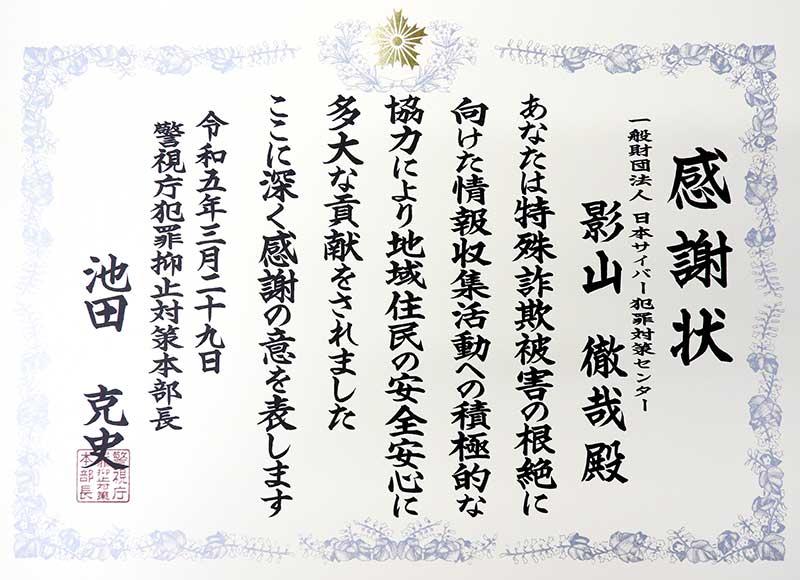 感謝状
一般財団法人 日本サイバー犯罪対策センター
影山 徹哉殿
あなたは特殊詐欺被害の根絶に
向けた情報収集活動への積極的な
協力により地域住民の安全安心に
多大な貢献をされました
ここに深く感謝の意を表します
令和五年三月二十九日
警視庁犯罪抑止対策本部長
池田 克史
警視庁
犯罪抑止対策
本部長